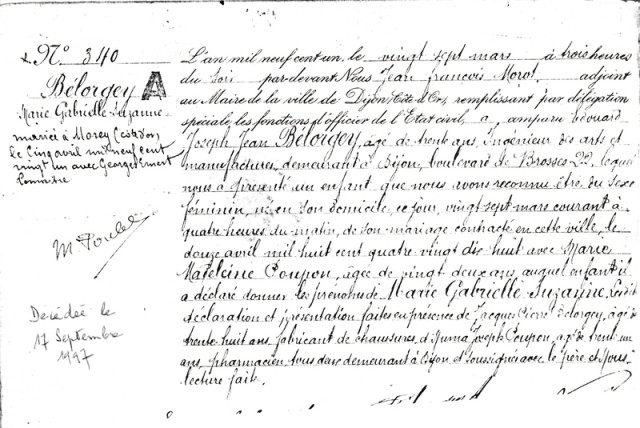 N° 340
Bélorgey A
Marie Gabrielle Suzanne
mariée à Morey (côte d'or)
le cinq avril mil neuf cent
vingt un avec Georges Ernest
Lemaitre
Décédée le
17 Septembre
1997
L'an mil neuf cent un, le vingt sept mars à trois heures
du soir par-devant Nous Jean François Morot, adjoint
au Maire de la ville de Dijon, Côte d'Or, remplissant par délégation
spéciale les fonctions d'officier de l'Etat civil, a comparu Edouard
Joseph Jean Bélorgey, âgé de trente ans, Ingénieur des arts et
manufactures, demeurant à Dijon, boulevard de Brosses 22, lequel
nous a présenté un enfant que nous avons reconnu être du sexe
féminin, né en son domicile, ce jour, vingt sept mars courant à
quatre heures du matin, de son mariage contracté en cette ville, le
douze avril mil huit cent quatre vingt dix huit avec Marie
Mateleine Coupon, âgée de vingt deux ans, auquel enfant il
a déclaré donner les prénoms de Marie Gabrielle Suzanne. Lesdit
déclaration et présentation faites en présence de Jacques Pierre Belorgey, âgé de
trente huit ans, fabricant de chaussures, et Joseph Coupon, âgé de trente un
ans, pharmacien, tous deux demeurant à Dijon et soussignés avec le père et Nous
lecture faite.